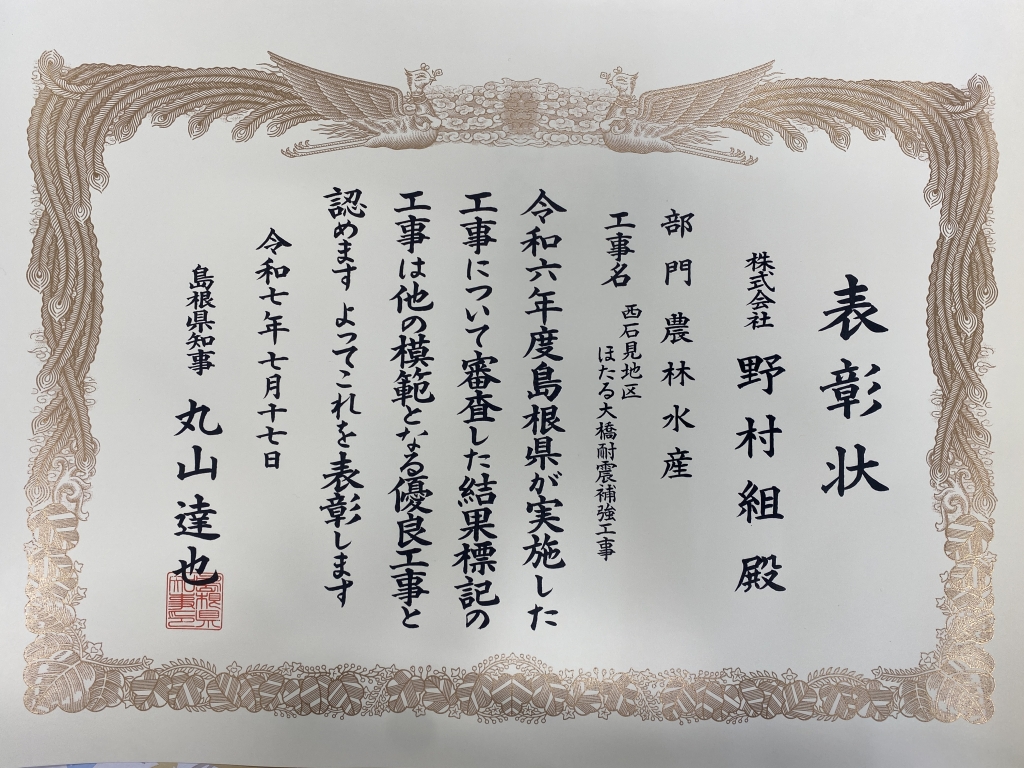 表彰状
株式会社 野村組 殿
部門 農林水産
工事名 西石見地区
ほたる大橋耐震補強工事
令和六年度島根県が実施した
工事について審査した結果標記の
工事は他の模範となる優良工事と
認めます よってこれを表彰します
令和七年七月十七日
島根県知事 丸山達也
島根県
知事印